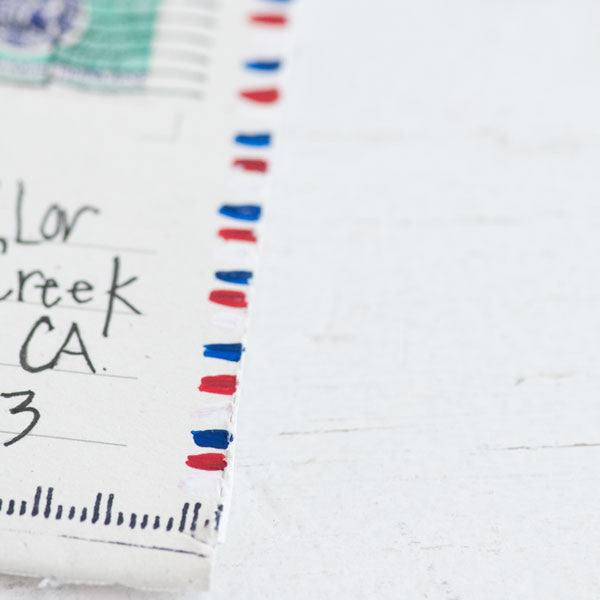 Lor
Creek
CA.
3